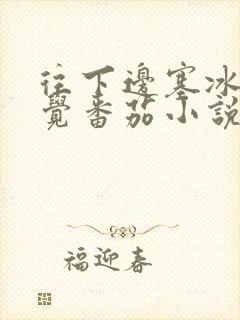 往下邊塞冰
覺番茄小說
福迎春